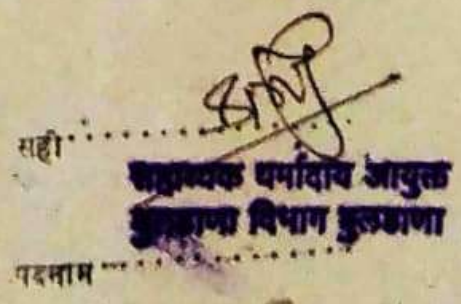 सही
सहाय्यक धर्मादाय आयुक्त
बुलडाणा विभाग बुलडाणा
पदनाम